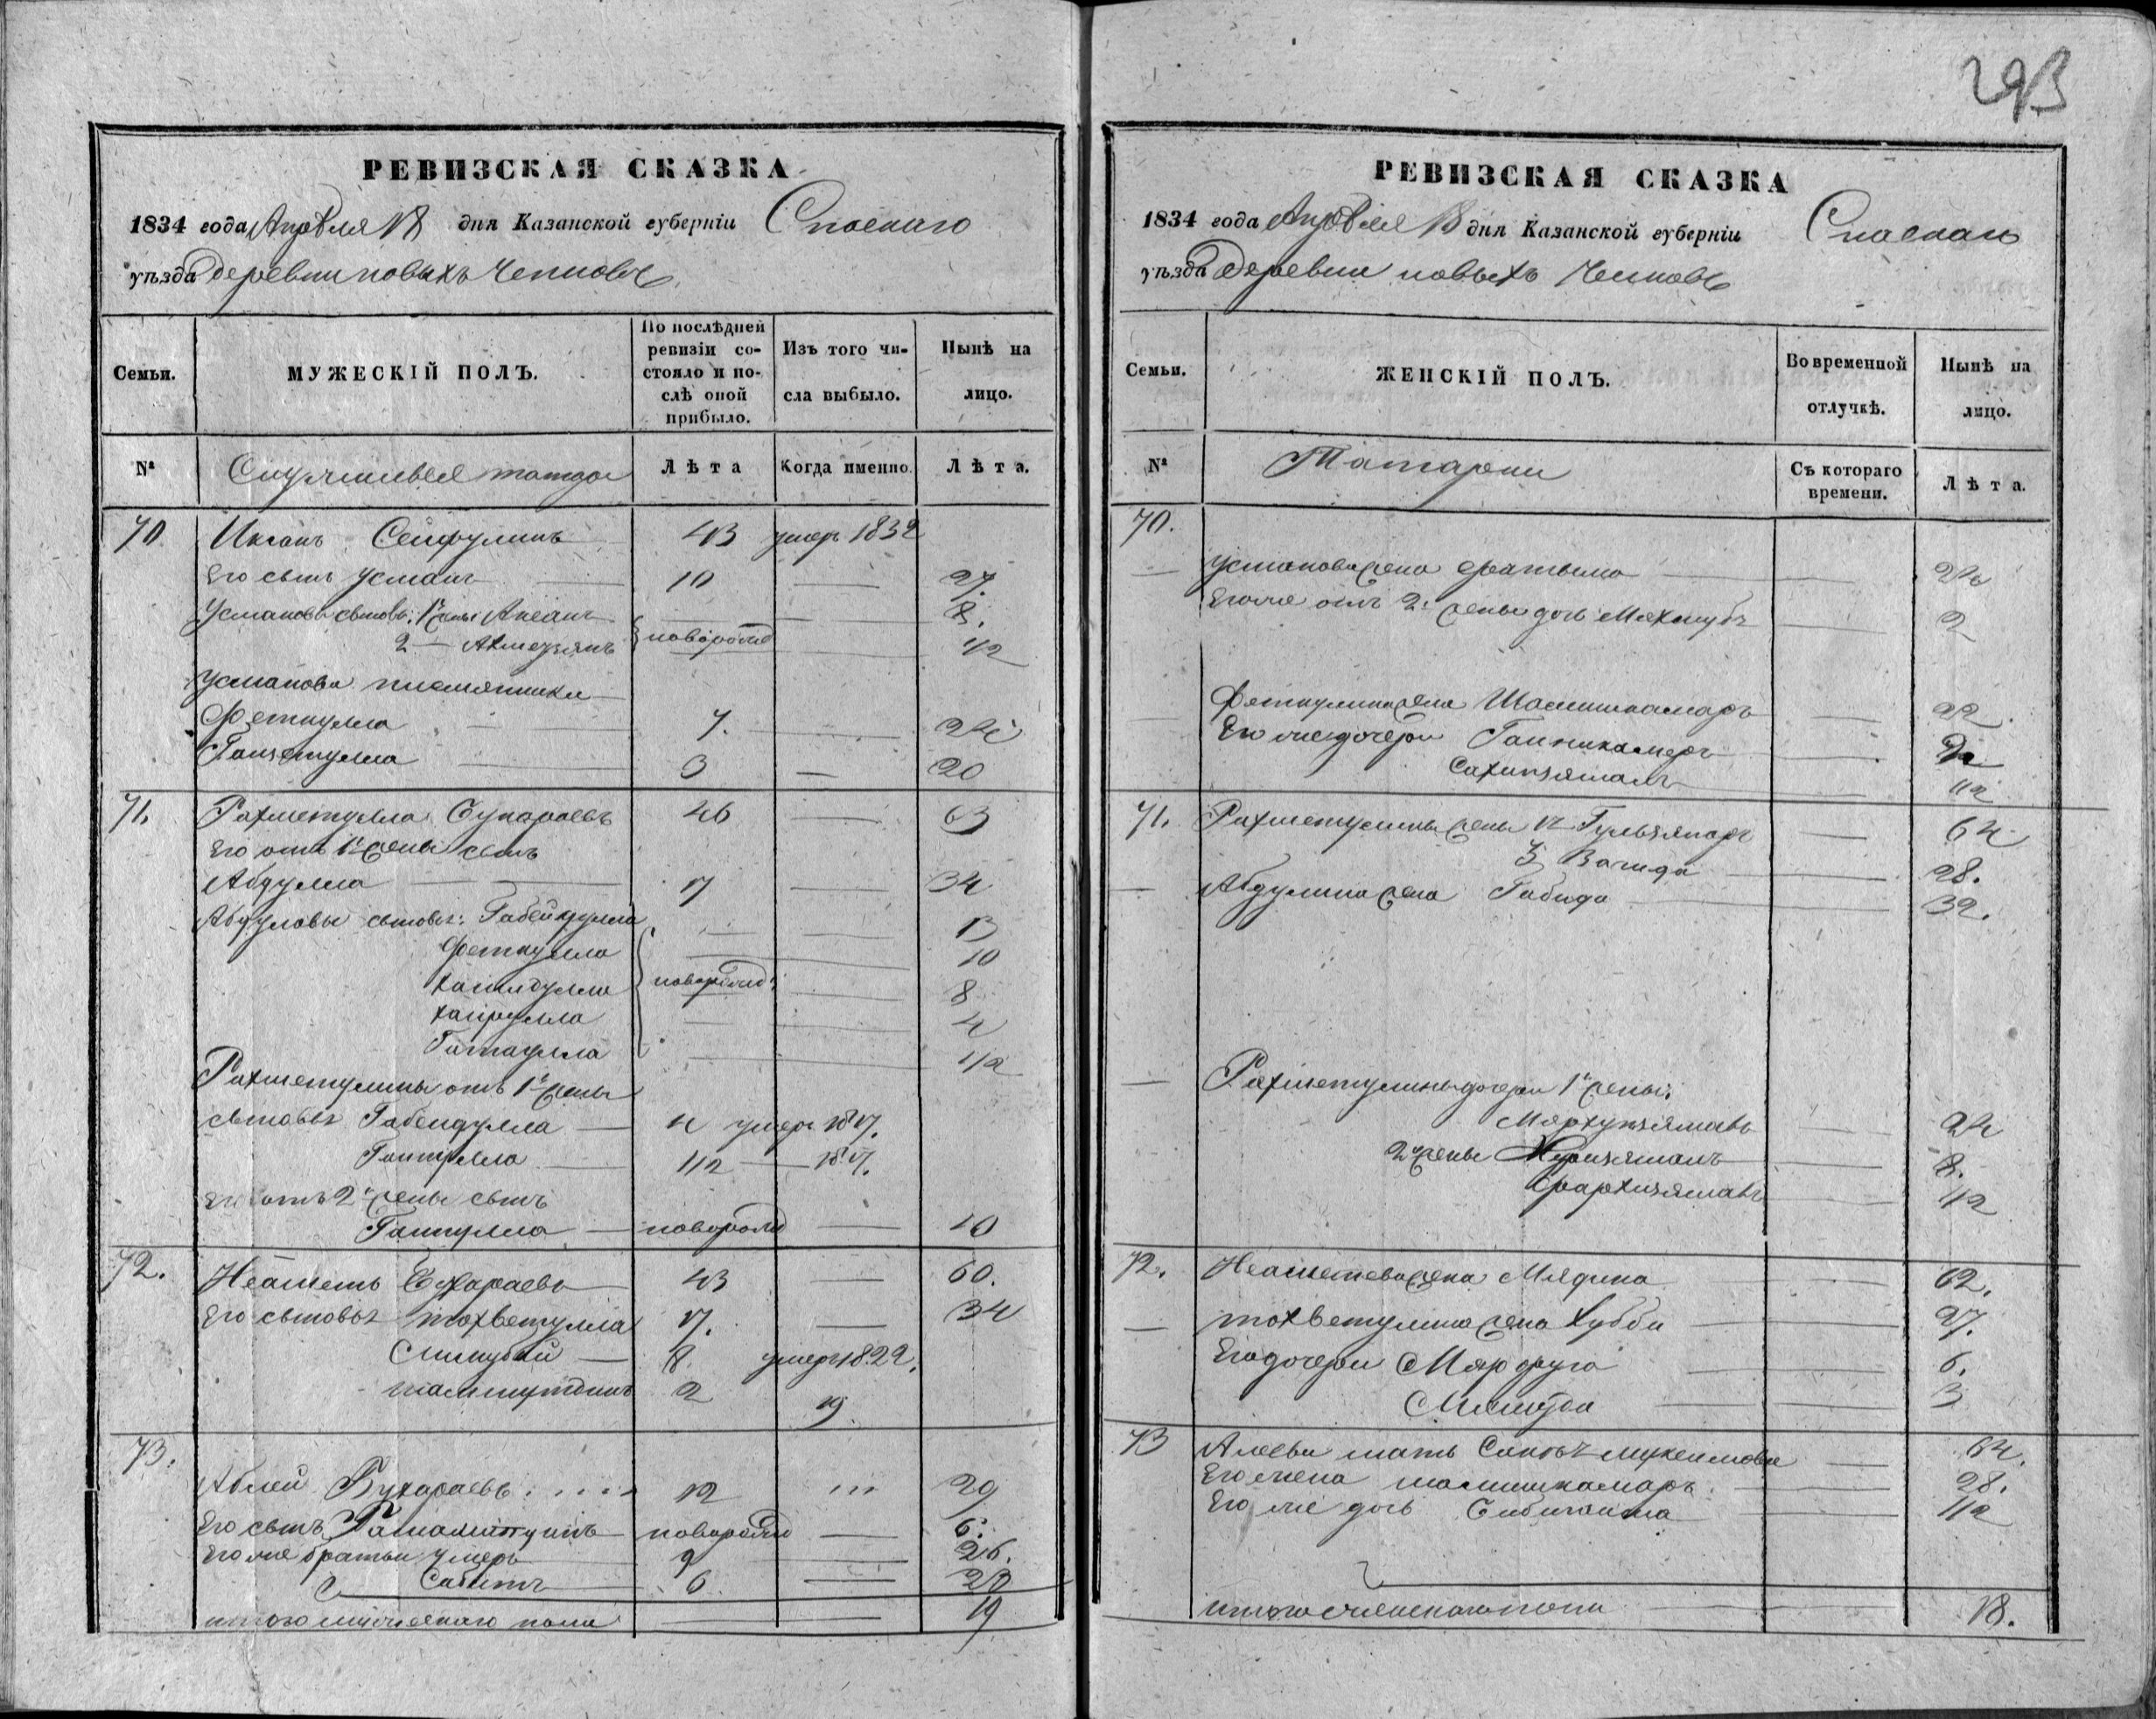 293
РЕВИЗСКАЯ СКАЗКА
1834 года Апреля 18 дня Казанской губерніи Спаскаго
уѣзда деревни новыхъ Челновъ
Семьи.
МУЖЕСКІЙ ПОЛЪ.
По послѣдней ревизіи состояло и послѣ оной прибыло.
Изъ того числа выбыло.
Нынѣ на лицо.
№
татара
Лѣта
Когда именно.
Лѣта.
70 Иксанъ Сейфулинъ 43 умеръ 1832
Его сынъ Усманъ 10 27.
Усмановы сыновья: 1й жены 8.
2 — Ахмезянъ новорожд 1/2
Усмановы племянники
Феткулла 7. 24
3 20
71. Рахметулла Бухараевъ 46 63
Его отъ 1й жены сынъ
Абдулла 17 34
Абдуловы сыновья: Габейдулла 13
Феткулла 10
новорожд: 8
Хайрулла 4
Гатаулла 1/2
Рахметулины отъ 1й жены
сыновья Габейдулла 4 умеръ 1817.
1/2 — 1817.
Его отъ 2й жены сынъ
новорожд 10
72. Неаметь Бухараевъ 43 60.
Его сыновья Тохветулла 17. 34
8 умеръ 1822.
2 19.
73. Аблей Бухараевъ 12 29
Его сынъ новорожд 6.
Его же братьи Умеръ 9 26.
Сабитъ 6 23
итого мужескаго пола 19
РЕВИЗСКАЯ СКАЗКА
1834 года Апреля 18 дня Казанской губерніи Спаскаго
уѣзда деревни новыхъ Челновъ
Семьи.
ЖЕНСКІЙ ПОЛЪ.
Во временной отлучкѣ.
Нынѣ на лицо.
№
Татарки
Съ котораго времени.
Лѣта.
70.
Усманова жена Фатыма 24
Его же отъ 2й жены дочь Махмубъ 2
Феткулина жена Шамшикамаръ 22.
Его же дочери
1/2
71. Рахметулины жены 1я 64
3 Вагида 28.
Абдулина жена Габида 32.
Рахметулины дочери 1й жены:
24
2й жены 8.
1/2
72. Неаметева жена Мядина 62.
Тохветулина жена Хубби 27.
Его дочери 6.
3
73 мать 64.
Его жена Шамшикамаръ 28.
Его же дочь 1/2
итого женскаго пола 18.